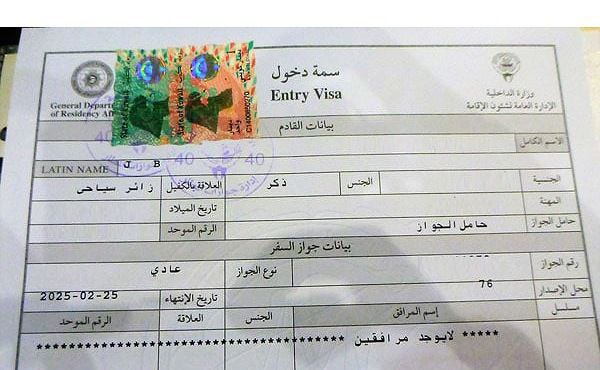 سمة دخول
Entry Visa
وزارة الداخلية
الإدارة العامة لشئون الإقامة
General Depar
of Residency Affa
C1400650270
بيانات القادم
40
40
الاسم الكامل
LATIN NAME J B
الجنسية
الجنس ذكر
العلاقة بالكفيل زائر سياحى
المهنة
تاريخ الميلاد
حامل الجواز حامل الجواز
الرقم الموحد
بيانات جواز السفر
رقم الجواز
نوع الجواز عادي
محل الإصدار 76
تاريخ الإنتهاء 2025-02-25
مسلسل إسم المرافق الجنس العلاقة الرقم الموحد
***** لايوجد مرافقين *****************************